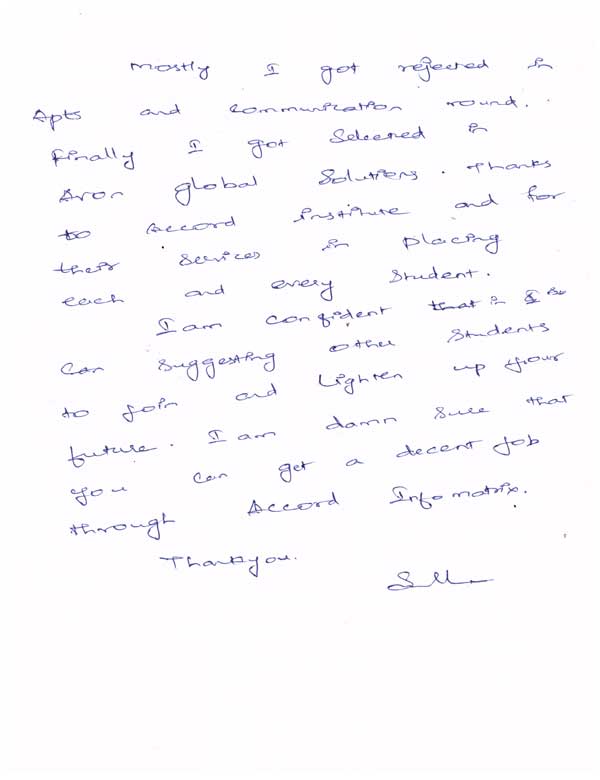 Mostly I got rejected in
Apts and communication round.
Finally I got Selected in
Avon global Solutions. Thanks
to Accord institute and for
their Services in placing
each and every Student.
I am confident that in I
Can suggesting other students
to join and Lighten up your
future. I am damn sure that
you can get a decent job
through Accord Infomatrix.
Thankyou.